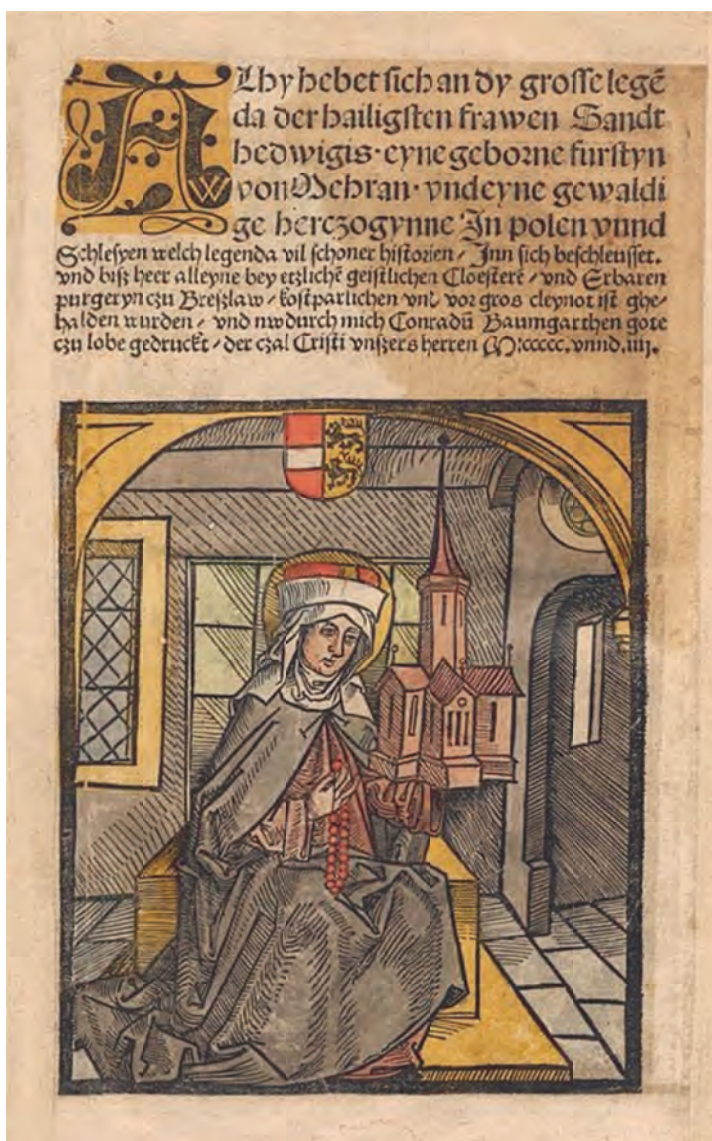 Alhy hebet sich an dy grosse legē
da der hailigsten frawen Sandt
hedwigis · eyne geborne furstyn
von Mehran · vnd eyne gewaldi
ge herczogynne In polen vnnd
Schlesyen welch legenda vil schoner historien / Inn sich beschleusset.
vnd biß heer alleyne bey etzlichē geistlichen Cloesterē / vnd Erbaren
purgeryn czu Breßlaw / kostparlichen vnd vor gros cleynot ist ghe-
halden wurden / vnd nw durch mich Conradū Baumgarthen gote
czu lobe gedruckt / der czal Cristi vnßers herren M:ccccc. vnnd .iiij.